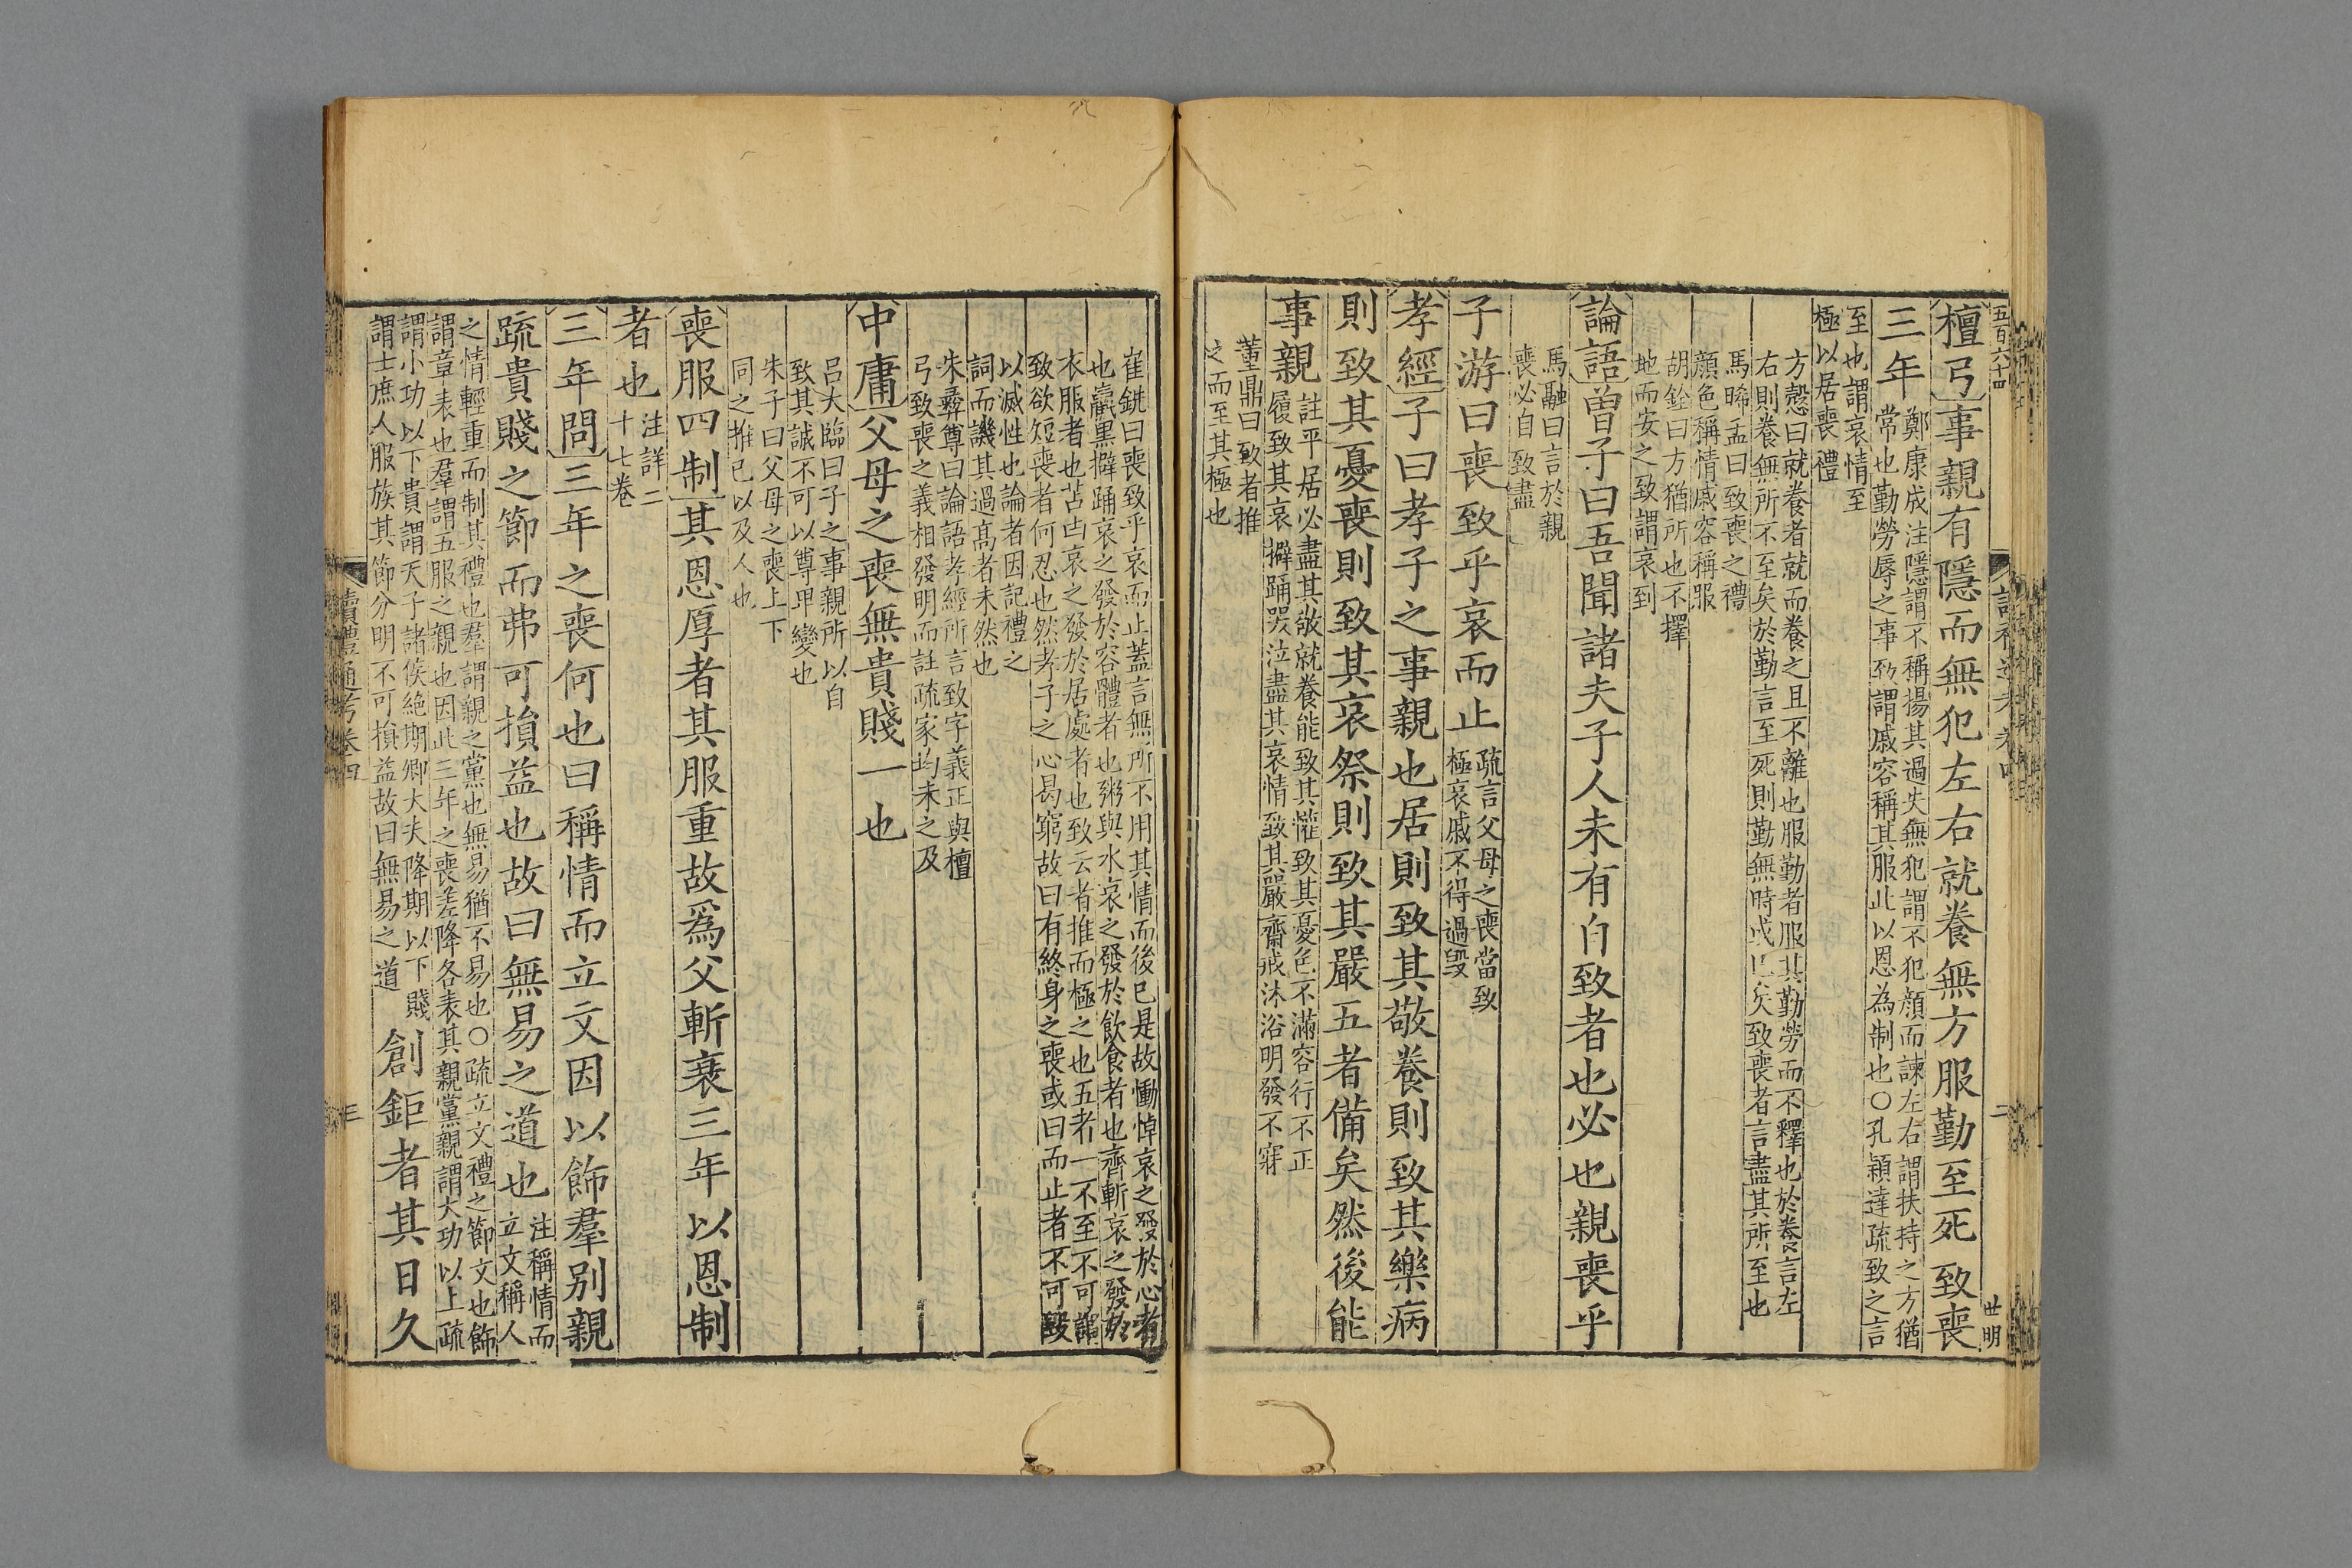 五百六十四
讀禮通考卷四
二
世明
檀弓事親有隱而無犯左右就養無方服勤至死致喪
三年
鄭康成注隱謂不稱揚其過失無犯謂不犯顏而諫左右謂扶持之方猶
常也勤勞辱之事致謂戚容稱其服此以恩為制也○孔穎達疏致之言
至也謂哀情至
極以居喪禮
方慤曰就養者就而養之且不離也服勤者服其勤勞而不釋也於養言左
右則養無所不至矣於勤言至死則勤無時或已矣致喪者言盡其所至也
馬晞孟曰致喪之禮
顏色稱情戚容稱服
胡銓曰方猶所也不擇
地而安之致謂哀到
論語曾子曰吾聞諸夫子人未有自致者也必也親喪乎
馬融曰言於親
喪必自致盡
子游曰喪致乎哀而止
疏言父母之喪當致
極哀戚不得過毀
孝經子曰孝子之事親也居則致其敬養則致其樂病
則致其憂喪則致其哀祭則致其嚴五者備矣然後能
事親
註平居必盡其敬就養能致其懽致其憂色不滿容行不正
履致其哀擗踊哭泣盡其哀情致其嚴齋戒沐浴明發不寐
董鼎曰致者推
之而至其極也
崔銑曰喪致乎哀而止蓋言無所不用其情而後已是故慟悼哀之發於心者
也羸黑擗踊哀之發於容體者也粥與水哀之發於飲食者也齊斬哀之發於
衣服者也苫凷哀之發於居處者也致云者推而極之也五者一不至不可謂
致欲短喪者何忍也然孝子之心曷窮故曰有終身之喪或曰而止者不可毀
以滅性也論者因記禮之
詞而譏其過高者未然也
朱彝尊曰論語孝經所言致字義正與檀
弓致喪之義相發明而註疏家均未之及
中庸父母之喪無貴賤一也
呂大臨曰子之事親所以自
致其誠不可以尊卑變也
朱子曰父母之喪上下
同之推己以及人也
喪服四制其恩厚者其服重故爲父斬衰三年以恩制
者也
注詳二
十七卷
三年問三年之喪何也曰稱情而立文因以飾羣别親
疏貴賤之節而弗可損益也故曰無易之道也
注稱情而
立文稱人
之情輕重而制其禮也羣謂親之黨也無易猶不易也○疏立文禮之節文也飾
謂章表也羣謂五服之親也因此三年之喪差降各表其親黨親謂大功以上疏
謂小功以下貴謂天子諸侯絶期卿大夫降期以下賤
謂士庶人服族其節分明不可損益故曰無易之道
創鉅者其日久
讀禮通考卷四
三